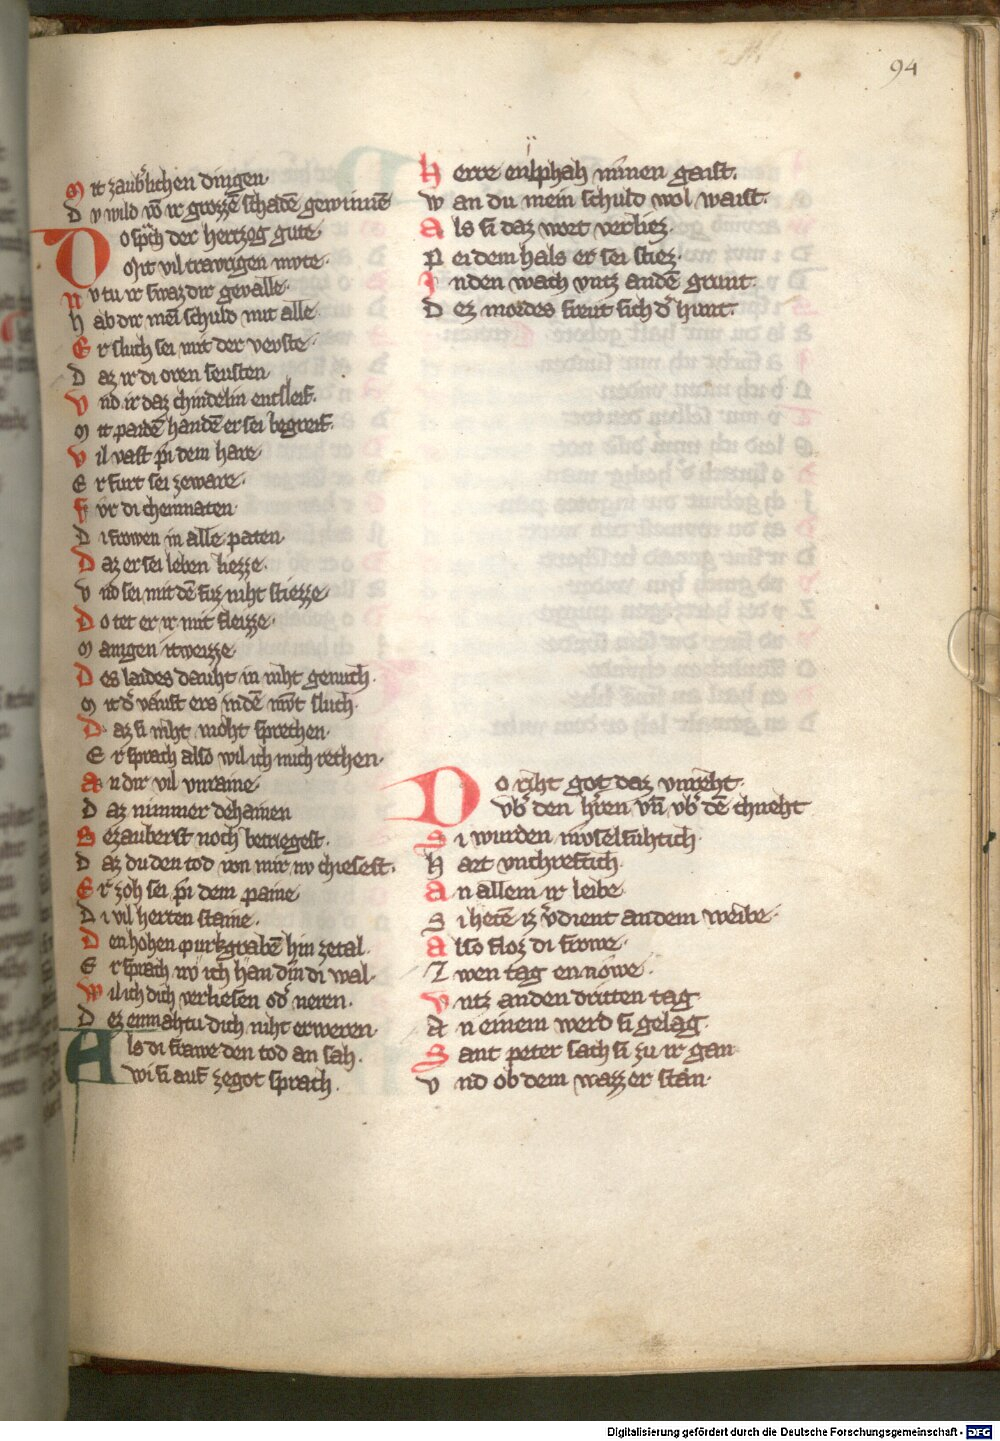 94
Mit zaub̾lichen dingen·
Dv wild vō ir grozzē schadē gewinnē
Do sp̾ch der hertzog gute·
Mit vil travrigen mvte·
Nv tu ir swaz dir gevalle·
Hab dir mei schuld mit alle·
Er sluch sei mit der vevste·
Daz ir di oren sevsten
Vnd ir daz chindelin entsleif·
Mit paidē handē er sei begreif·
Vil vast pi dem hare
Er furt sei zeware·
Fvr di chemnaten·
Di frowen in alle paten
Daz er sei leben liezze·
Vnd sei mit dē fuz niht stiezze
Do tet er ir mit fleizze·
Manigen itweizze
Des laides dauht in niht genuch·
Mit d̾ vaust ers in dē mvt sluch·
Daz si niht moht sprechen·
Er sprach also wil ich mich rechen·
An dir vil vnraine·
Daz nimmer dehainen
Bezauberst noch betriegest·
Daz du den tod von mir nv chiesest·
Er zoh sei pi dem paine
Di vil herten staine·
Den hohen purkgrabē hin zetal·
Er sprach nv ich han dir di wal·
Wil ich dich verliesen od̾ neren·
Dez enmahtu dich niht erweren·
Als di frawe den tod an sah·
Wi si auf zegot sprach·
Herre enlphah minen gaist·
Wan du mein schuld wol waist·
Als si daz wort verliez·
Pei dem hals er sei stiez·
In den wach vntz an dē grunt·
Dez mordes freut sich d̾ hunt·
Do riht got daz vnreht·
Vb̾ den h̾ren vn̄ vb̾ dē chneht
Si wurden mvselsuhtich·
Hart vnchreftich·
An allem ir leibe·
Si hetē iz v̾dient an dem weibe·
Also floz di frowe·
Zwen tag en nowe·
Vntz an den dritten tag·
An einem werd si gelag·
Sant peter sach si zu ir gan
Vnd ob dem wazzer stan·
Digitalisierung gefördert durch die Deutsche Forschungsgemeinschaft - DFG